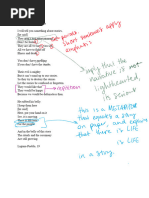 I will tell you something about stories,
[he said]
They aren't just entertainment.
Don't be fooled.
They are all we have, you see,
all we have to fight off
illness and death.
1st person
short sentences apply
emphasis
You don't have anything
if you don't have the stories.
imply that the
narrative is not
lighthearted,
is serious
Their evil is mighty
but it can't stand up to our stories.
So they try to destroy the stories
let the stories be confused or forgotten.
They would like that
They would be happy
Because we would be defenseless then.
repetition
He rubbed his belly.
I keep them here
[he said]
Here, put your hand on it
See, it is moving.
There is life here
for the people.
this is a METAPHOR
that equates a story
on paper, and
that there is LIFE
in a story
And in the belly of this story
the rituals and the ceremony
are still growing.
Laguna Pueblo,